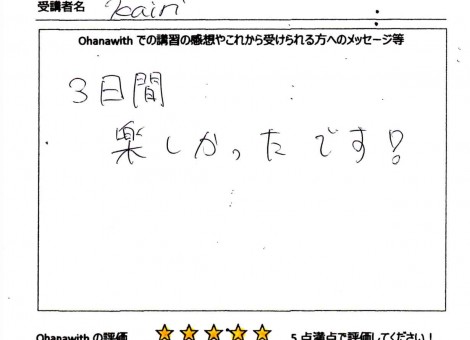 受講者名 kairi
Ohanawith での講習の感想やこれから受けられる方へのメッセージ等
3日間
楽しかったです!
Ohanawith の評価 ★★★★★ 5 点満点で評価してください!